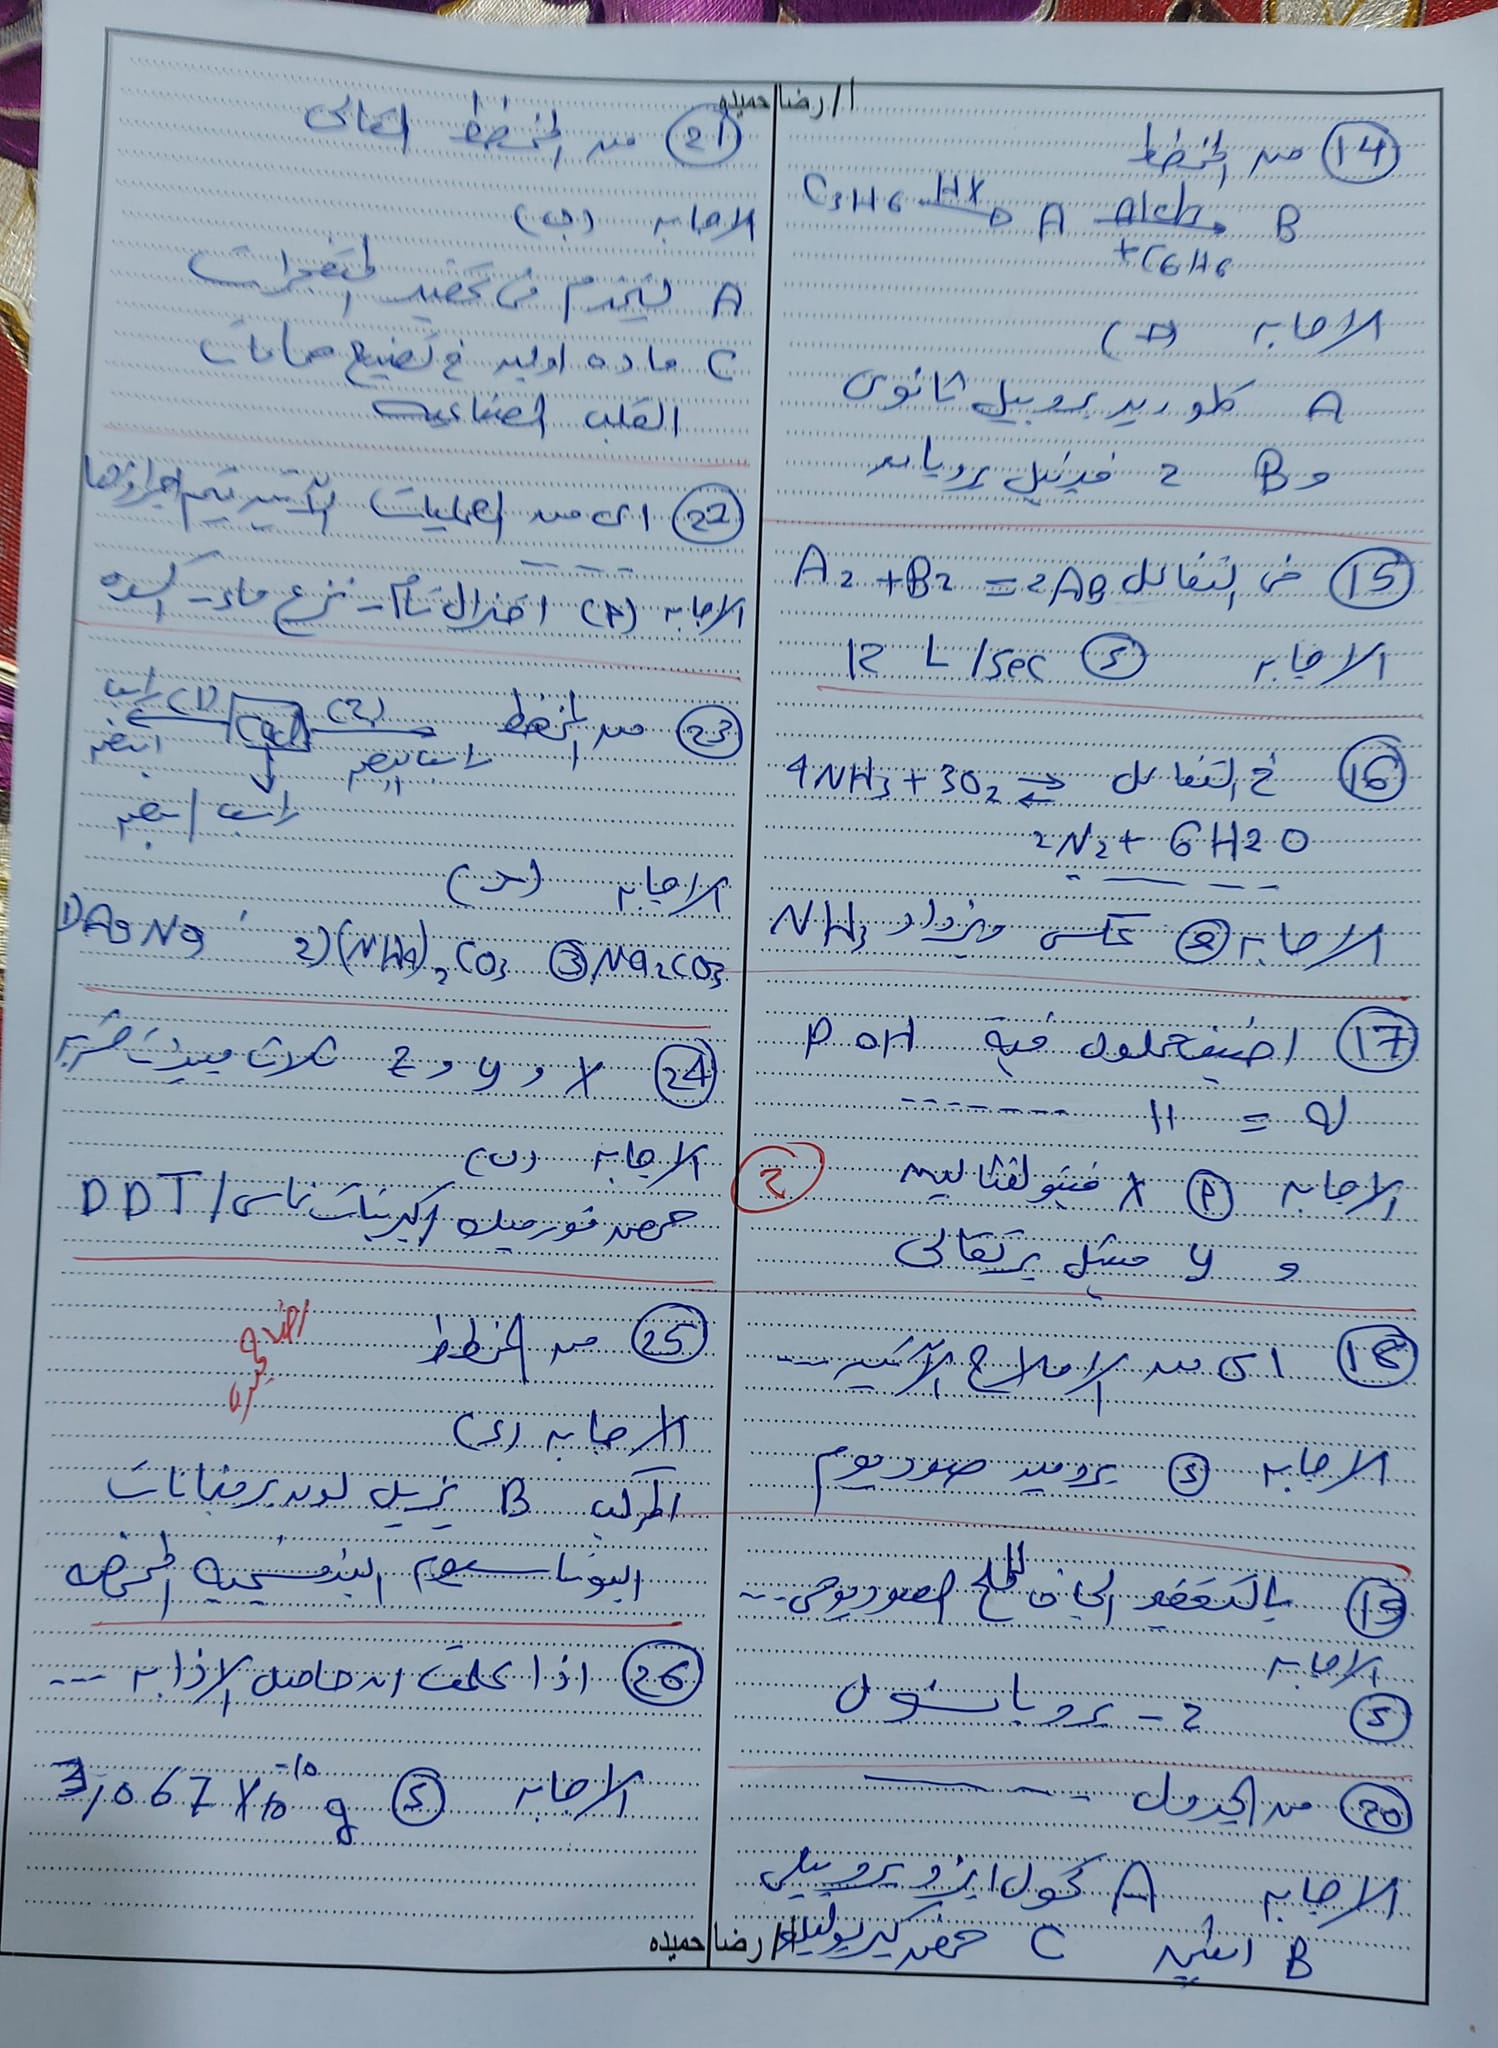 ا/ رضا حميده
14 من المخطط
C3H6 HX A Alcl3 B
+C6H6
الاجابه (ج)
A كلوريد بروبيل ثانوى
و B 2 فينيل بروبان
15 فى التفاعل A2 + B2 = 2AB
الاجابه (د) 12 L/sec
16 فى التفاعل 4NH3 + 3O2 ⇌
2N2 + 6H2O
الاجابه عكسى ويزداد NH3
17 اضيف محلول فيه POH
له = 11
الاجابه (أ) X فينولفثالين
و y ميثيل برتقالى
2
18 اى من الاملاح الآتيه ---
الاجابه (د) بروميد صوديوم
19 بالتقطير الجاف للملح الصوديومى ---
الاجابه
(د) 2 - بروبانول
20 من الجدول
الاجابه A كحول ايزوبروبيلى
B استير C حمض كربوليك
21 من المخطط التالى
الاجابه (ب)
A يستخدم فى تحضير المتفجرات
C ماده اوليه فى تصنيع صمامات
القلب الصناعيه
22 اى من العمليات الآتيه يتم اجراؤها
الاجابه (أ) اختزال تام - نزع ماء - اكسده
23 من المخطط (2) (1) راسب
راسب ابيض ابيض
راسب ابيض
الاجابه (ج)
1) AgNO3 2) (NH4)2CO3 3 Na2CO3
24 X و y و Z ثلاث مبيدات حشريه
الاجابه (ب)
حمض فورميك / كبريتات نحاس / DDT
25 من المخطط
الاجابه (د)
المركب B يزيل لون برمنجانات
البوتاسيوم البنفسجيه المحمضه
26 اذا علمت ان حاصل الاذابه ---
الاجابه (د) 3,067 X 10-10 g
ا/ رضا حميده